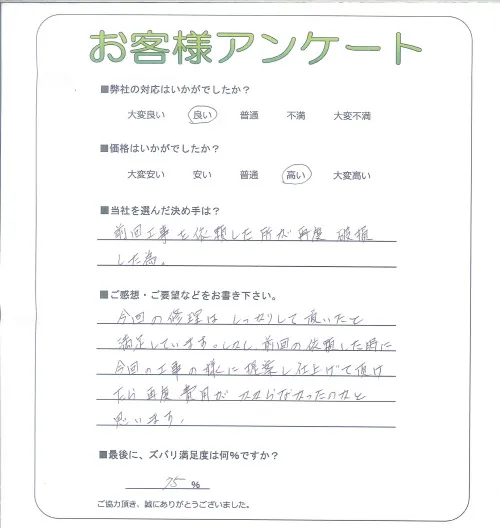 お客様アンケート
■弊社の対応はいかがでしたか？
大変良い 良い 普通 不満 大変不満
■価格はいかがでしたか？
大変安い 安い 普通 高い 大変高い
■当社を選んだ決め手は？
前回工事を依頼した所が再度破損
した為。
■ご感想・ご要望などをお書き下さい。
今回の修理はしっかりして頂いたと
満足しています。しかし、前回の依頼した時に
今回の工事の様に提案し仕上げて頂け
たら再度費用がかからなかったのかと
思います。
■最後に、ズバリ満足度は何％ですか？
75 ％
ご協力頂き、誠にありがとうございました。